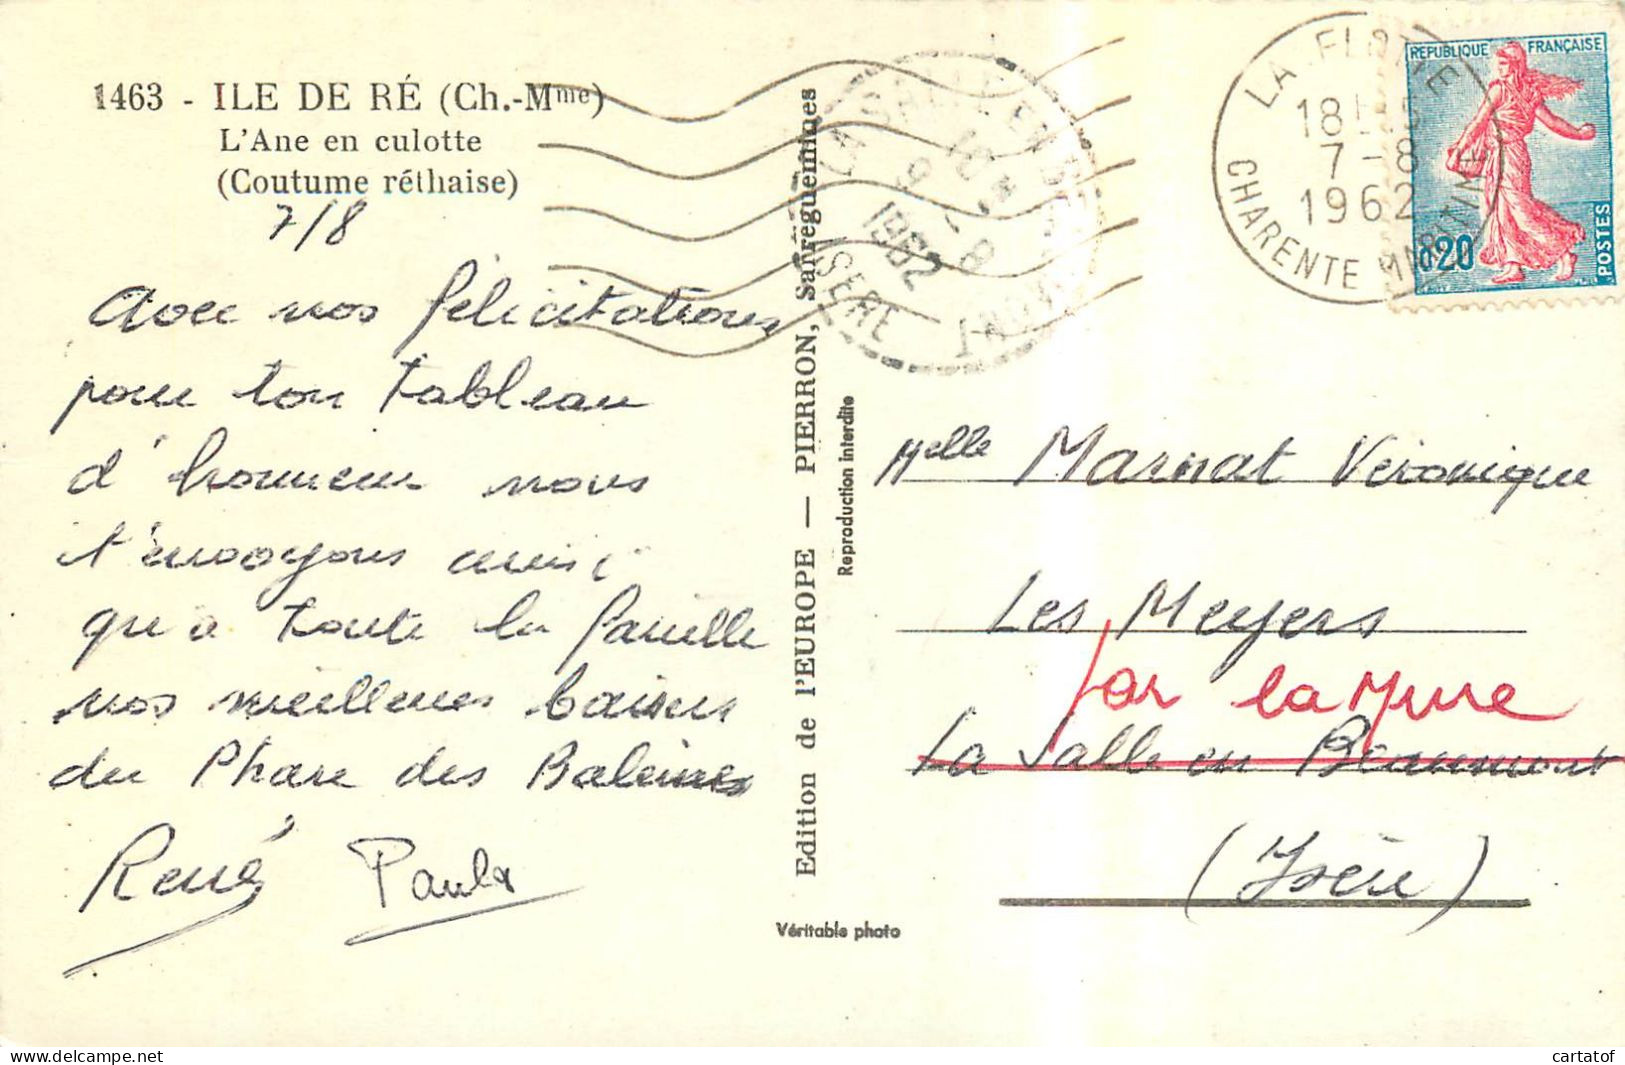 1463 - ILE DE RÉ (Ch.-Mme)
L'Ane en culotte
(Coutume réthaise)
7/8
Avec nos félicitations
pour ton tableau
d'honneur nous
t'envoyons ainsi
qu'a toute la famille
nos meilleures baisers
du Phare des Baleines
René Paula
Edition de l'EUROPE — PIERRON, Sarreguemines
Reproduction interdite
Véritable photo
LA SALLE EN BEAUMONT
10 H
9 - 8
1962
ISERE
LA FLOTTE
18 H
7 - 8
1962
CHARENTE MARITIME
REPUBLIQUE FRANÇAISE
0,20
POSTES
Melle Marnat Véronique
Les Meyers
par la Mure
La Salle en Beaumont
(Isère)
cartes-postales-delcampe.com
cartatof